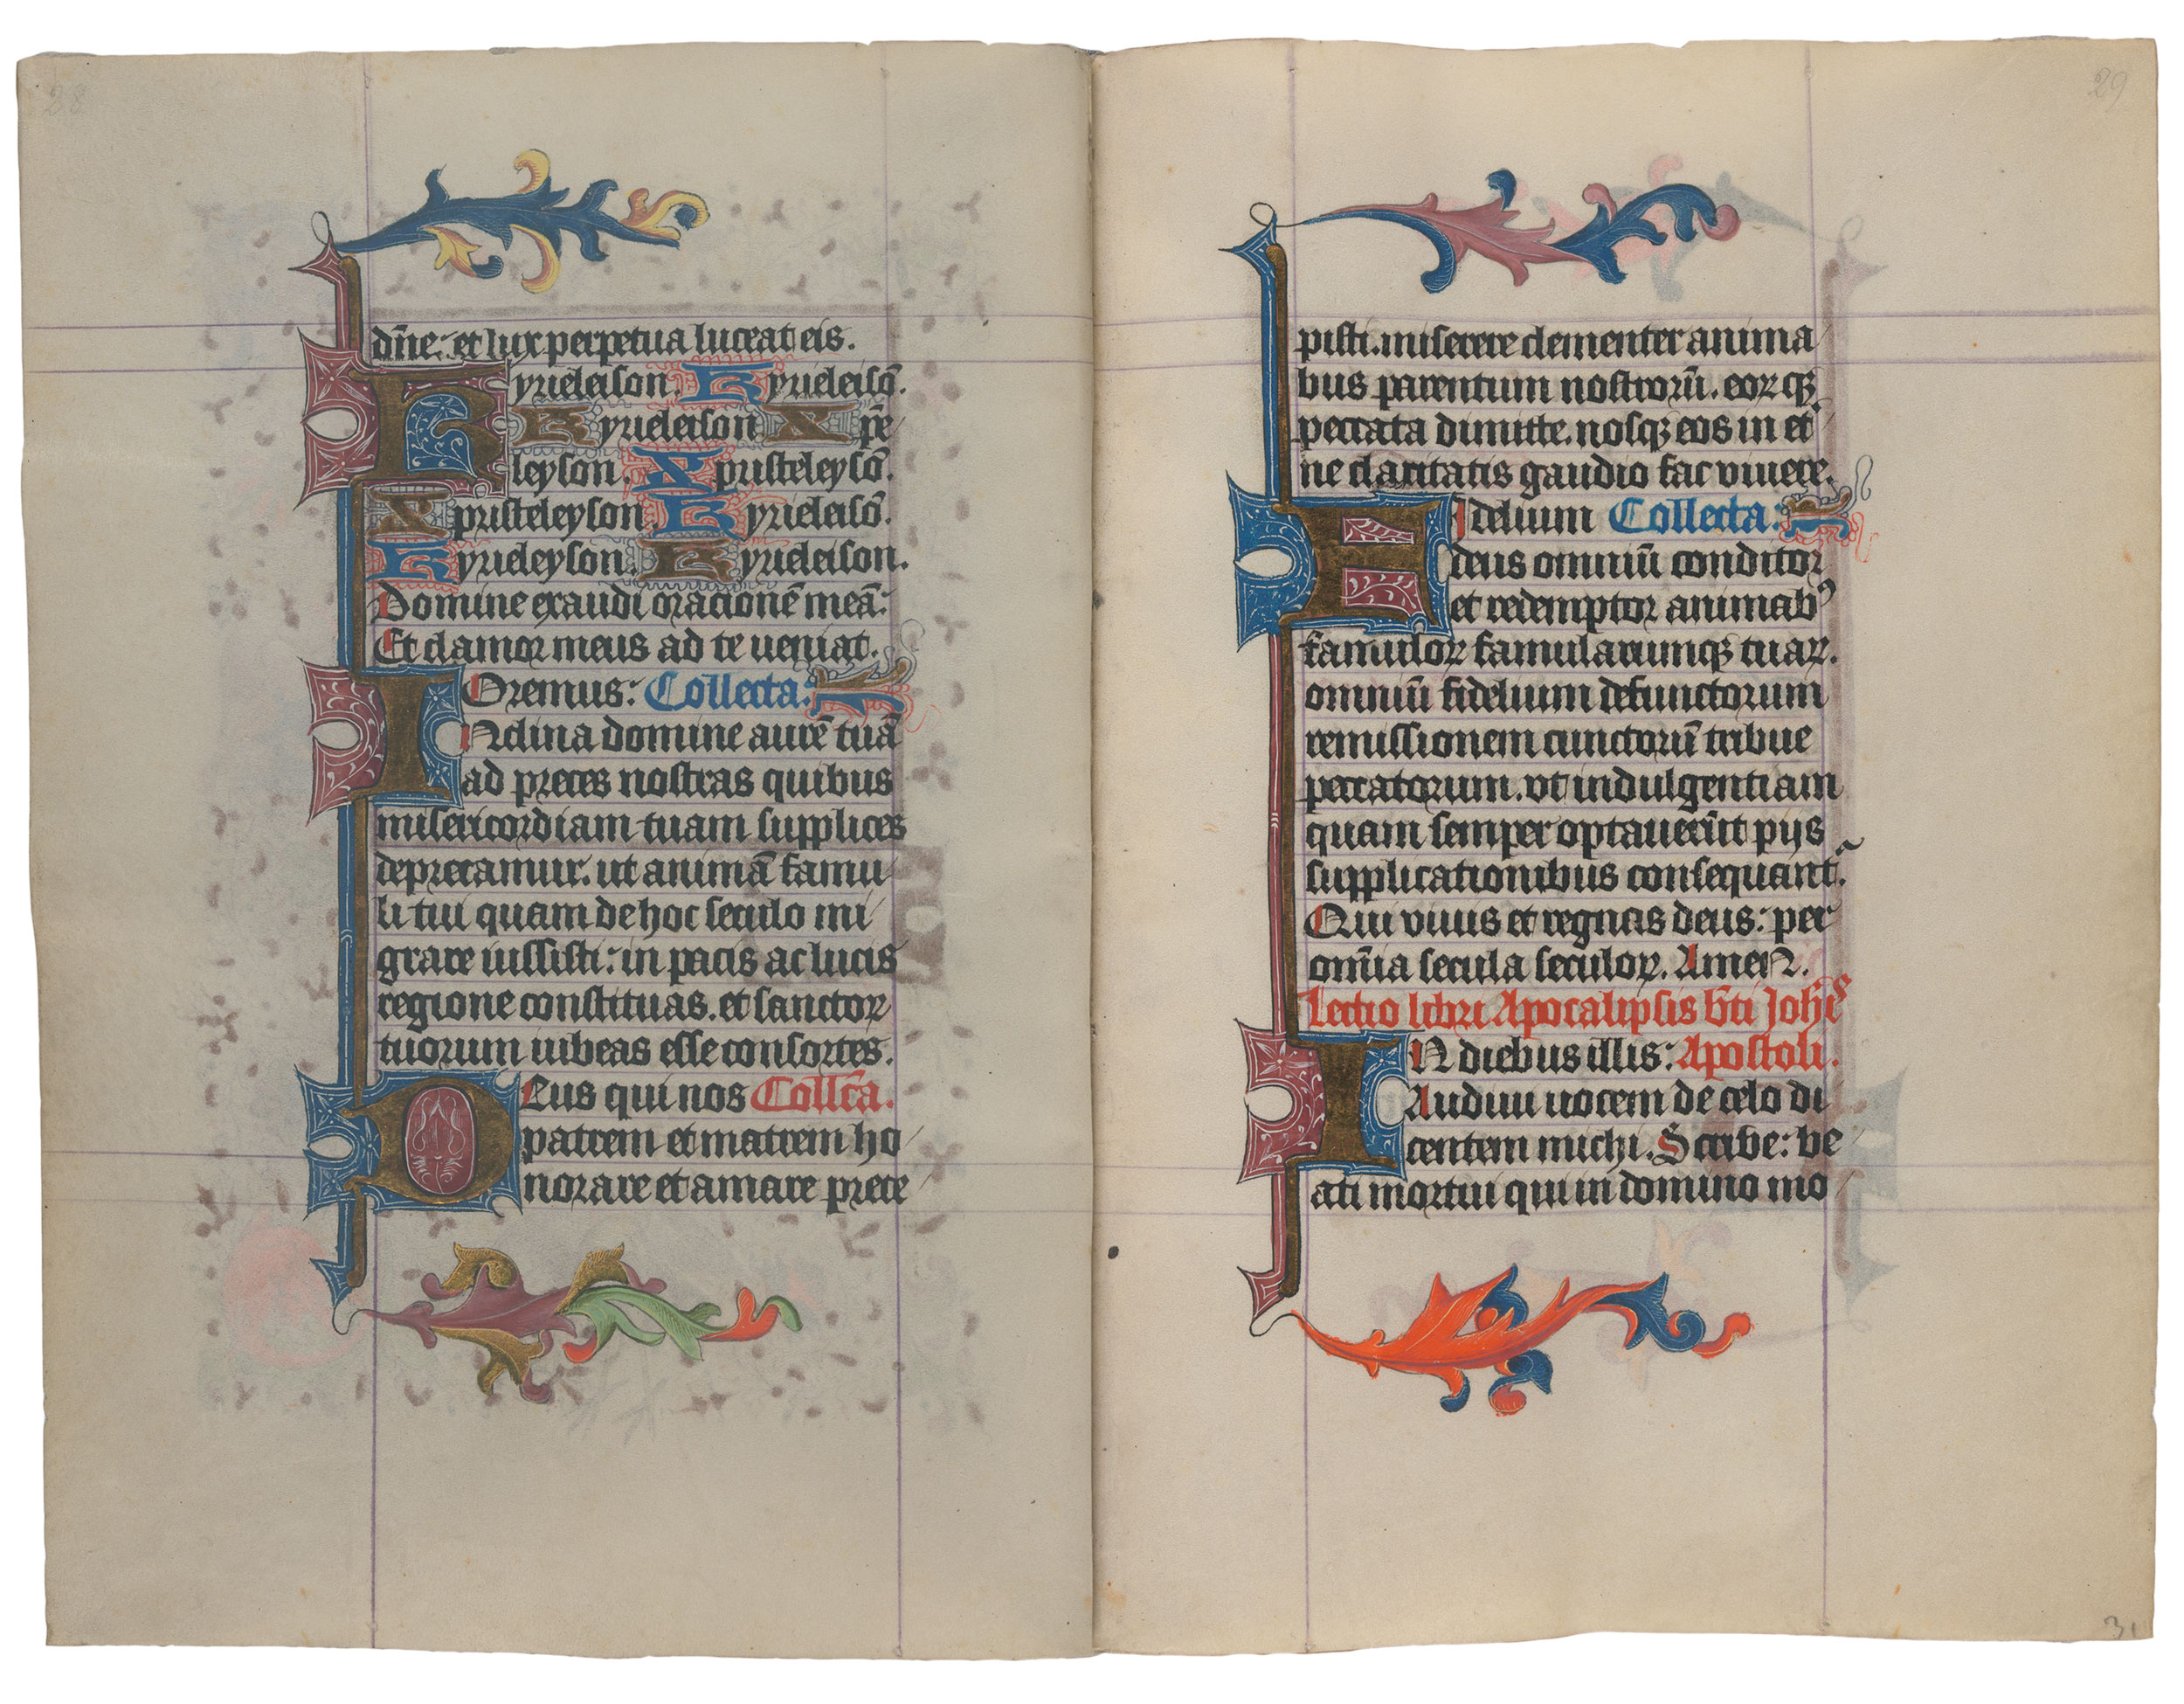 28
dn̄e. et lux perpetua luceat eis.
Kyrieleison. Kyrieleisō.
Kyrieleison Xpē
leyson. Xpristeleysō.
Xpristeleyson. Kyrieleisō.
Kyrieleyson. Kyrieleison.
Domine exaudi oracionē meā:
Et clamor meus ad te ueniat.
Oremus: Collecta:
INclina domine aurē tuā
ad preces nostras quibus
misericordiam tuam supplices
deprecamur. ut animā famu
li tui quam de hoc seculo mi
grare iussisti: in pacis ac lucis
regione constituas. et sanctoꝝ
tuorum iubeas esse consortes.
DEus qui nos Collc̄a.
patrem et matrem ho
norare et amare prece
29
pisti. miserere clementer anima
bus parentum nostrorū. eoꝝ qꝫ
peccata dimitte. nosqꝫ eos in et
ne claritatis gaudio fac viuere.
FIdelium Collecta:
deus omniū conditor
et redemptor animabꝰ
famuloꝝ famularumqꝫ tuaꝝ.
omniū fidelium defunctorum
remissionem cunctorū tribue
peccatorum. vt indulgentiam
quam semper optauerūt pijs
supplicationibus consequant᷑.
Qui viuis et regnas deus: per
om̄ia secula seculoꝝ. AmeN.
Lectio libri Apocalipsis bt̄i Joh̄is
IN diebus illis: Apostoli.
Audiui uocem de celo di
centem michi. Scribe: be
ati mortui qui in domino mo
31